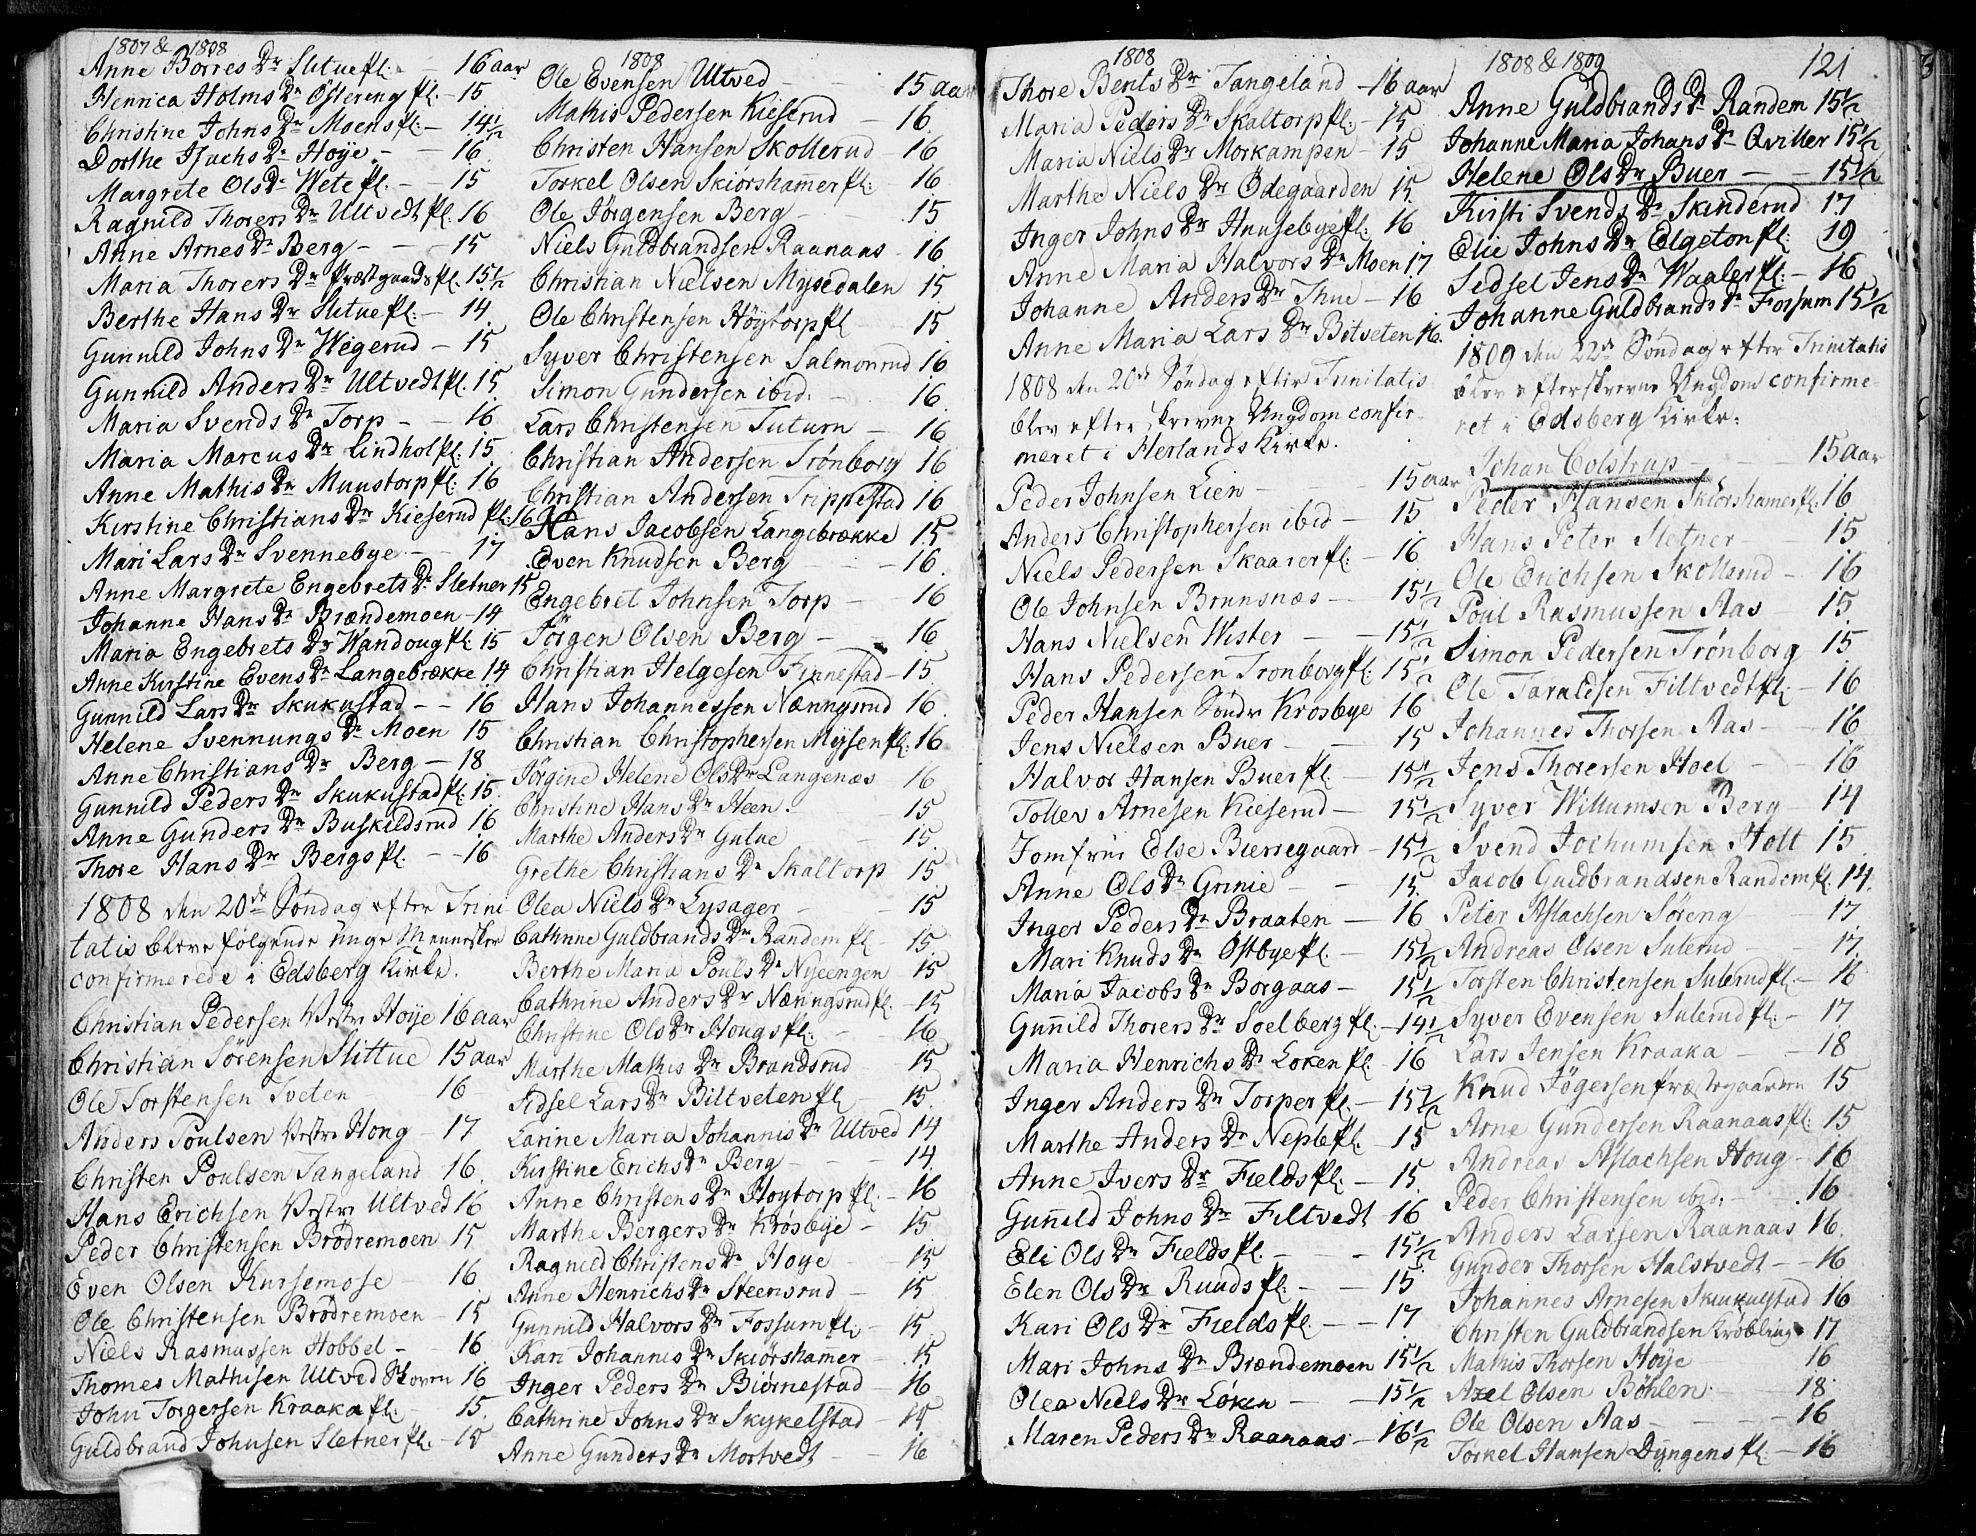 1807 & 1808
Anne Borres Dr Slituepl. - 16 aar
Henrica Holms Dr Östereng pl. - 15
Christine Johns Dr Moenspl: - 14 1/2
Dorthe Isachs Dr Hoÿe - - 16
Margrete Ols Dr Wetepl. - - 15
Ragnild Thorers Dr Ultvedtpl. 16
Anne Arnes Dr Berg - - - 15
Maria Thorers Dr Præstgaardspl. 15 1/2
Berthe Hans Dr Slituepl. - 14
Gunnild Johns Dr Wegerud - 15
Gunnild Anders Dr Ultvedtpl. 15
Maria Svends Dr Torp - - 16
Maria Marcus Dr Lindholpl: 15
Anne Mathis Dr Muustorppl: 16
Kirstine Christians Dr Kieserud pl: 16
Mari Lars Dr Svennebye - - 17
Anne Margrete Engebrets Dr Sletner 15
Johanne Hans Dr Brændemoen - 14
Maria Engebrets Dr Wandougpl 15
Anne Kirstine Evens Dr Langebrække 14
Gunnild Lars Dr Skukustad - - 16
Helene Svennungs Dr Moen 15
Anne Christians Dr Berg - 18
Gunnild Peders Dr Skukustadpl. 15.
Anne Gunders Dr Buskildsrud 16
Thore Hans Dr Bergspl. - - 16
1808 den 20de Søndag efter Trini
tatis bleve følgende unge Mennesker
confirmerede i Edsberg Kirke.
Christian Pedersen Vestre Hoÿe 16 aar
Christian Sörensen Slittue 15 aar
Ole Torstensen Tveten 16
Anders Poulsen Vestre Houg - 17
Christen Poulsen Tangeland 16.
Hans Erichsen Vestre Ultved 16
Peder Christensen Brödremoen 15
Even Olsen Kursemose - 16
Ole Christensen Brödremoen - 15
Niels Rasmussen Hobbel - 16
Thomes Mathisen Ultved Skoven 16
John Torgersen Kraakapl. - 15.
Guldbrand Johnsen Sletnerpl. - 15
1808
Ole Evensen Ultved - - 15 aar
Mathis Pedersen Kieserud - 16.
Christen Hansen Skollerud - 16
Torkel Olsen Skiörshamerpl: 16.
Ole Jörgensen Berg - 15
Niels Guldbrandsen Raanaas - 16
Christian Nielsen Mysedalen 15
Ole Christensen Höytorppl - 15
Syver Christensen Salmonrud 16
Simon Gundersen ibid. - 16
Lars Christensen Tuturn - 16
Christian Andersen Trönborg 16
Christian Andersen Trippestad 16
Hans Jacobsen Langebrække 15
Even Knudsen Berg - 16.
Engebret Johnsen Torp - 16
Jörgen Olsen Berg - 16
Christian Helgesen Finnestad - 15
Hans Johannessen Nænngsrud 16
Christian Christophersen Mysenpl. 16
Jörgine Helene Ols Dr Langenæs 16
Christine Hans Dr Heen. - 15
Marthe Anders Dr Gulue - 15.
Grethe Christians Dr Skaltorp 15
Olea Niels Dr Lysager - 15
Cathrine Guldbrands Dr Randem pl - 15
Berthe Maria Pouls Dr Nyeengen 15
Cathrine Anders Dr Nænngsrudpl. - 15
Christine Ols Dr Hougspl. - 16
Marthe Mathis Dr Brandsrud 15
Sidsel Lars Dr Biltvetenpl - 15.
Larine Maria Johannis Dr Ultved 14
Kirstine Erichs Dr Berg - - 14.
Anne Christens Dr Hoytorppl. - 16
Marthe Bergers Dr Krosbye - 15
Ragnild Christens Dr Hoye - 15
Anne Henrichs Dr Steensrud - 15
Gunnild Halvors Dr Fossumpl. - 15
Kari Johannis Dr Skiörshamer - 15
Inger Peders Dr Biörnestad - 16
Cathrine Johns Dr Skykelstad - 15
Anne Gunders Dr Mortvedt - 16
1808
Thore Bents Dr Tangeland - 16 aar
Maria Peders Dr Skaltorppl. - 15
Maria Niels Dr Morkampen - 15
Marthe Niels Dr Ödegaarden 15.
Inger Johns Dr Huusebyepl. 16
Anne Maria Halvors Dr Moen 17
Johanne Anders Dr Thue - 16
Anne Maria Lars Dr Bitveten 16.
1808 den 20de Søndag efter Trinitatis
blev efterskrevne Ungdom confir
meret i Herlands Kirke.
Peder Johnsen Lien - - 15 aar
Anders Christophersen ibid - 15
Niels Pedersen Skaarerpl. - 16
Ole Johnsen Brunsnæs - - 15 1/2
Hans Nielsen Wister - - 15 1/2
Hans Pedersen Tronborgpl. 15 1/2
Peder Hansen Söndre Krosbye 16
Jens Nielsen Buer - - 15
Halvor Hansen Buerpl. - 15 1/2
Tollev Arnesen Kieserud - 15 1/2
Jomfrue Else Bierregaard - 15 1/2
Anne Ols Dr Grinie - - 15.
Inger Peders Dr Braaten - 16
Mari Knuds Dr Ostbyepl. - 15 1/2
Maria Jacobs Dr Borgaas - 15 1/2
Gunnild Thorers Dr Soelberg pl. - 14 1/2
Maria Henrichs Dr Loken pl. 16
Inger Anders Dr Torper pl. - 15 1/2
Marthe Anders Dr Neplepl. - 15
Anne Ivers Dr Fieldspl. - 15.
Gunnild Johns Dr Filtvedt 16
Eli Ols Dr Fieldspl. - - 15 1/2
Elen Ols Dr Ruudspl. - - 15
Kari Ols Dr Fieldspl - - 17
Mari Johns Dr Brændemoen 15 1/2
Olea Niels Dr Löken - - 15 1/2
Maren Peders Dr Raanaas - 16 1/2
1808 & 1809 121
Anne Guldbrands Dr Randem 15 1/2
Johanne Maria Johans Dr Qviller 15 1/2
Helene Ols Dr Buer - - 15 1/2
Kirsti Svends Dr Skinderud 17
Elie Johns Dr Elgetonpl. 19
Sidsel Jens Dr Waalerpl. - 16
Johanne Guldbrands Dr Fossum 15 1/2
1809 den 22de Søndag efter Trinitatis
blev efterskrevne Ungdom confirme-
ret i Edsberg Kirke.
Johan Colstrup - - 15 aar
Peder Hansen Skiörshamerpl. 16
Hans Peter Sletner - 15
Ole Erichsen Skollerud - 16
Poul Rasmussen Aas - 15
Simon Pedersen Trönborg 15
Ole Taraldsen Filtvedtpl. - 16
Johannes Thorsen Aas - - 16
Jens Thorersen Hoel - - 16
Syver Willumsen Berg - 14
Svend Jochumsen Holt 15
Jacob Guldbrandsen Randempl. 14.
Peter Aslachsen Söreng 17
Andreas Olsen Sulerud - 17
Torsten Christensen Sulerudpl. - 16
Syver Evensen Sulerudpl. - 17
Lars Jensen Kraaka - - 18
Knud Jögersen Præstegaarden 15
Arne Gundersen Raanaaspl. 15
Andreas Aslachsen Houg - 16
Peder Christensen ibid. - 16
Anders Larsen Raanaas 16.
Gunder Thorsen Halstvedt - - 16
Johannes Arnesen Skukulstad 16
Christen Guldbrandsen 17
Mathis Thorsen Hoÿe 16
Axel Olsen Böhlen. - 18
Ole Olsen Aas - - - 16
Torkel Hansen Dyngenspl. - 16